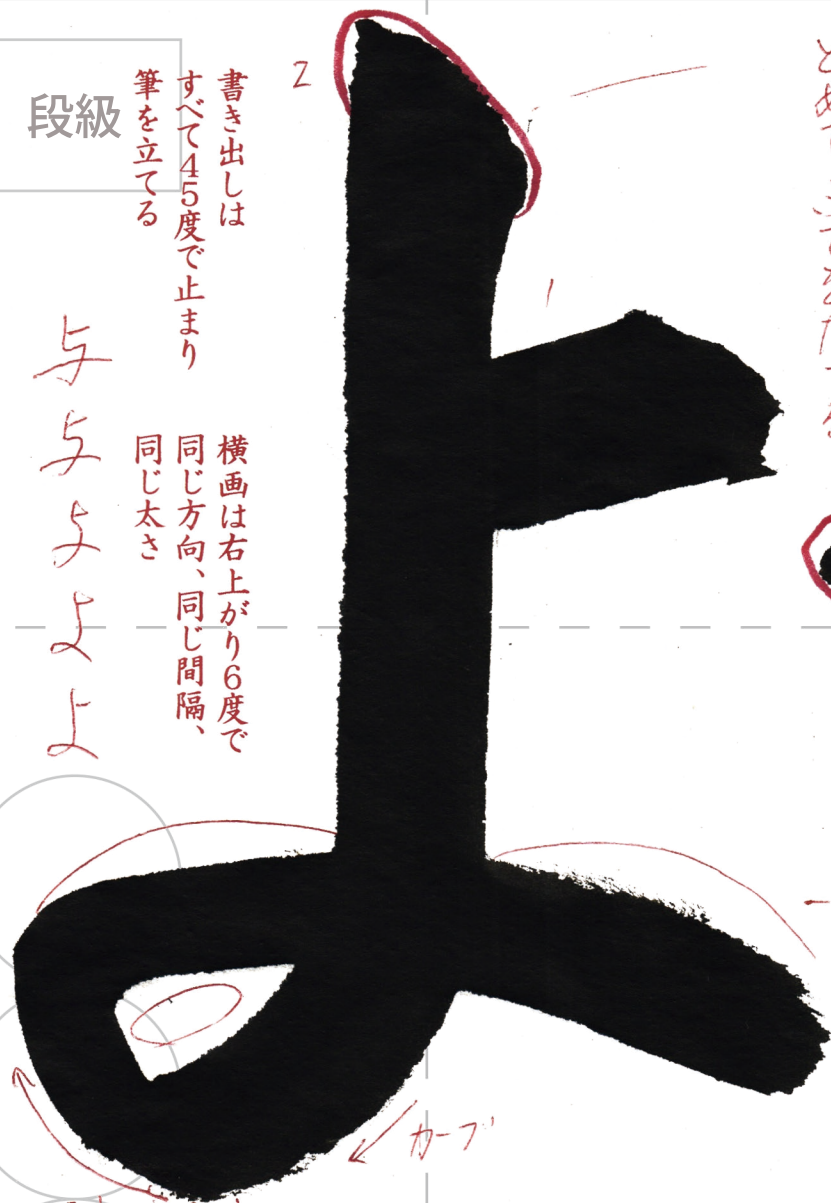 よ
とめて
2
1
段級
書き出しは
すべて45度で止まり
筆を立てる
横画は右上がり6度で
同じ方向、同じ間隔、
同じ太さ
与
与
よ
よ
よ
カーブ